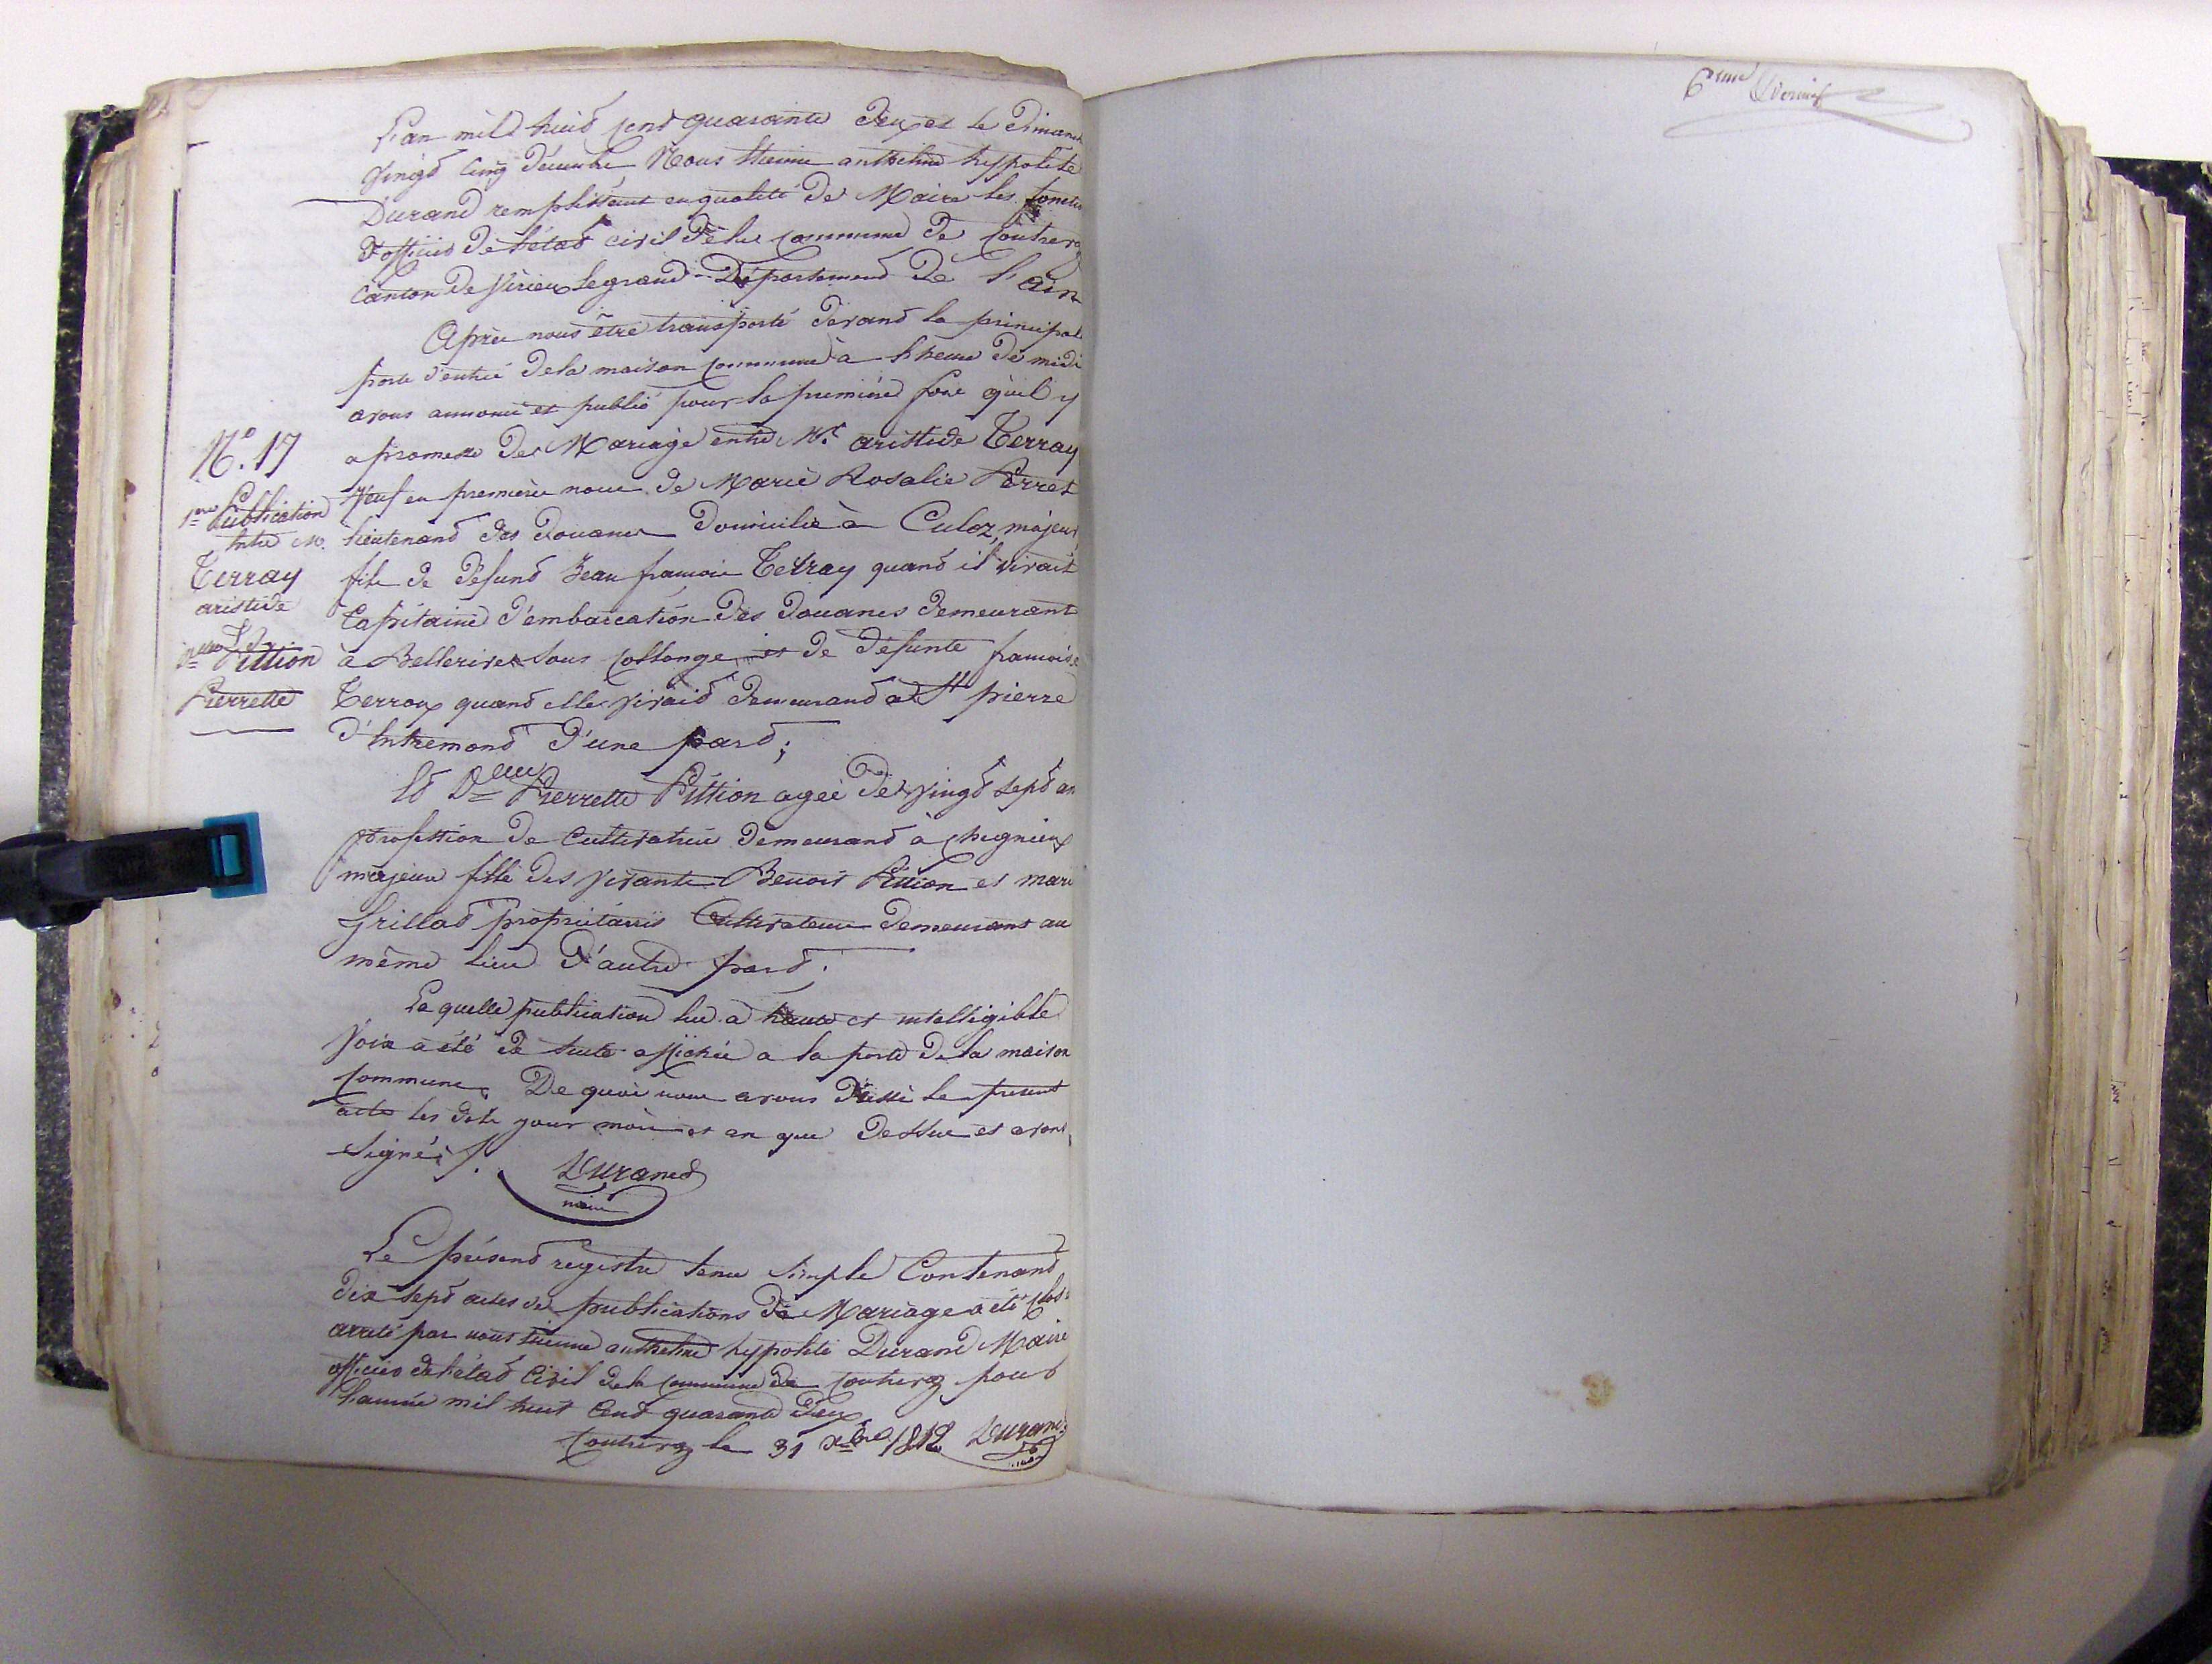 L'an mil huit cent quarante deux et le dimanch
Vingt cinq décembre Nous Etienne anthelme hyppolite
Durand remplissant en qualité de Maire les fonction
d'officier de l'état civil de la commune de Contrevoz
Canton de Virieu le grand Département de l'ain
Après nous être transporté devant la principale
porte d'entrée de la maison commune à l'heure de midi
avons annoncé et publié pour la première fois qu'il y
N.° 17
a promesse de Mariage entre Mr aristide Terray
veuf en première noce de Marie Rosalie Perret
1ere Publication
Entre M.
Terray
aristide
et
Delle Pittion
Pierrette
lieutenant des douanes Domicilié à Culoz, majeur,
fils de défunt Jean françois Terray quand il vivait
Capitaine d'embarcation des douanes demeurant
à Bellerive sous collonge et de défunte françoise
Terroux quand elle vivait demeurand à St pierre
d'Entremond d'une pard;
Et Delle Pierrette Pittion agée de vingt sept an
profession de cultivatrice demeurand à chignieux
majeure fille des vivants Benoit Pittion et marie
Grillat propriétaires Cultivateurs demeurant au
même lieu d'autre pard.
La quelle publication lue à haute et intelligible
voix a été de suite affichée a la porte de la maison
commune. De quoi nous avons dressé le présent
acte les dits jour mois et an que dessus et avons
signé ./.
Durand
maire
Le présend registre tenu simple Contenand
dix sept actes de publications de Mariage a été clos
arrêté par nous Etienne anthelme hyppolite Durand Maire
officier de l'état Civil de la commune de Contrevoz pour
l'année mil huit cent quarante deux
Contrevoz le 31 Xbre 1842 Durand
maire
6eme